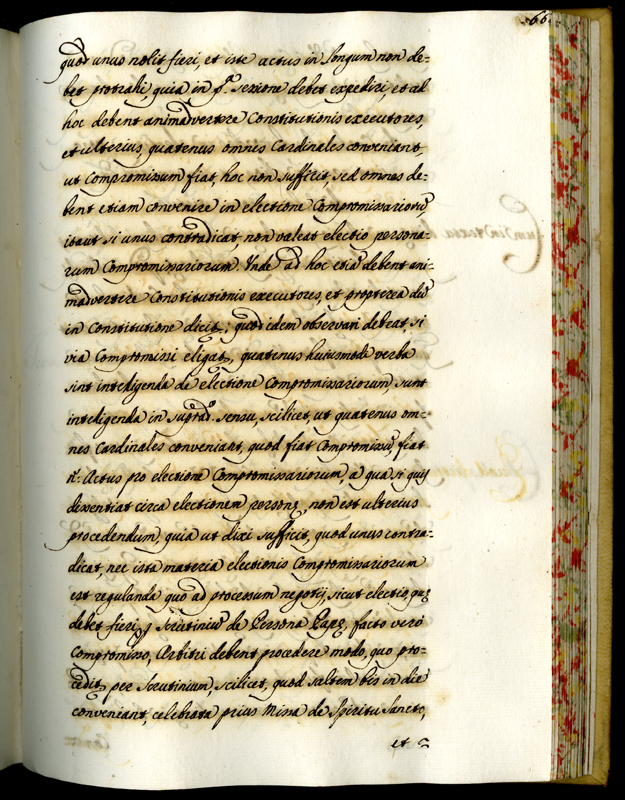 66.
quod unus nolit fieri, et iste actus in longum non de-
bet protrahi, quia in p.ª sessione debet expediri, et ad
hoc debent animadvertere Constitutionis executores,
et ulterius, quatenus omnes Cardinales conveniant,
ut Compromissum fiat, hoc non sufficit, sed omnes de-
bent etiam convenire in electione Compromissarioru᷉
itaut si unus contradicat non valeat electio persona-
rum Compromissariorum. Unde ad hoc etia᷉ debent ani-
madvertere Constitutionis executores, et propterea du᷉
in Constitutione dicit, quod idem observari debeat, si
via Compromissi eligat, quatenus huiusmodi verba
sint intelligenda de electione Compromissariorum, sunt
intelligenda in suprad.º sensu, scilicet, ut quatenus om-
nes Cardinales conveniant, quod fiat Compromissu᷉, fiat
n.º Actus pro electione Compromissariorum, a qua si quis
dissentiat circa electionem personę, non est ulterius
procedendum, quia ut dixi sufficit, quod unus contra-
dicat, nec ista materia electionis Compromissariorum
est regulanda quo ad processum negotij, sicut electio, quę
debet fieri p Scrutiniu᷉ de Persona Papę, facto vero
Compromisso, Arbitri debent procedere modo, quo pro-
cedit per Scrutinium, scilicet, quod saltem bis in die
conveniant, celebrata prius Missa de Spiritu Sancto,
et